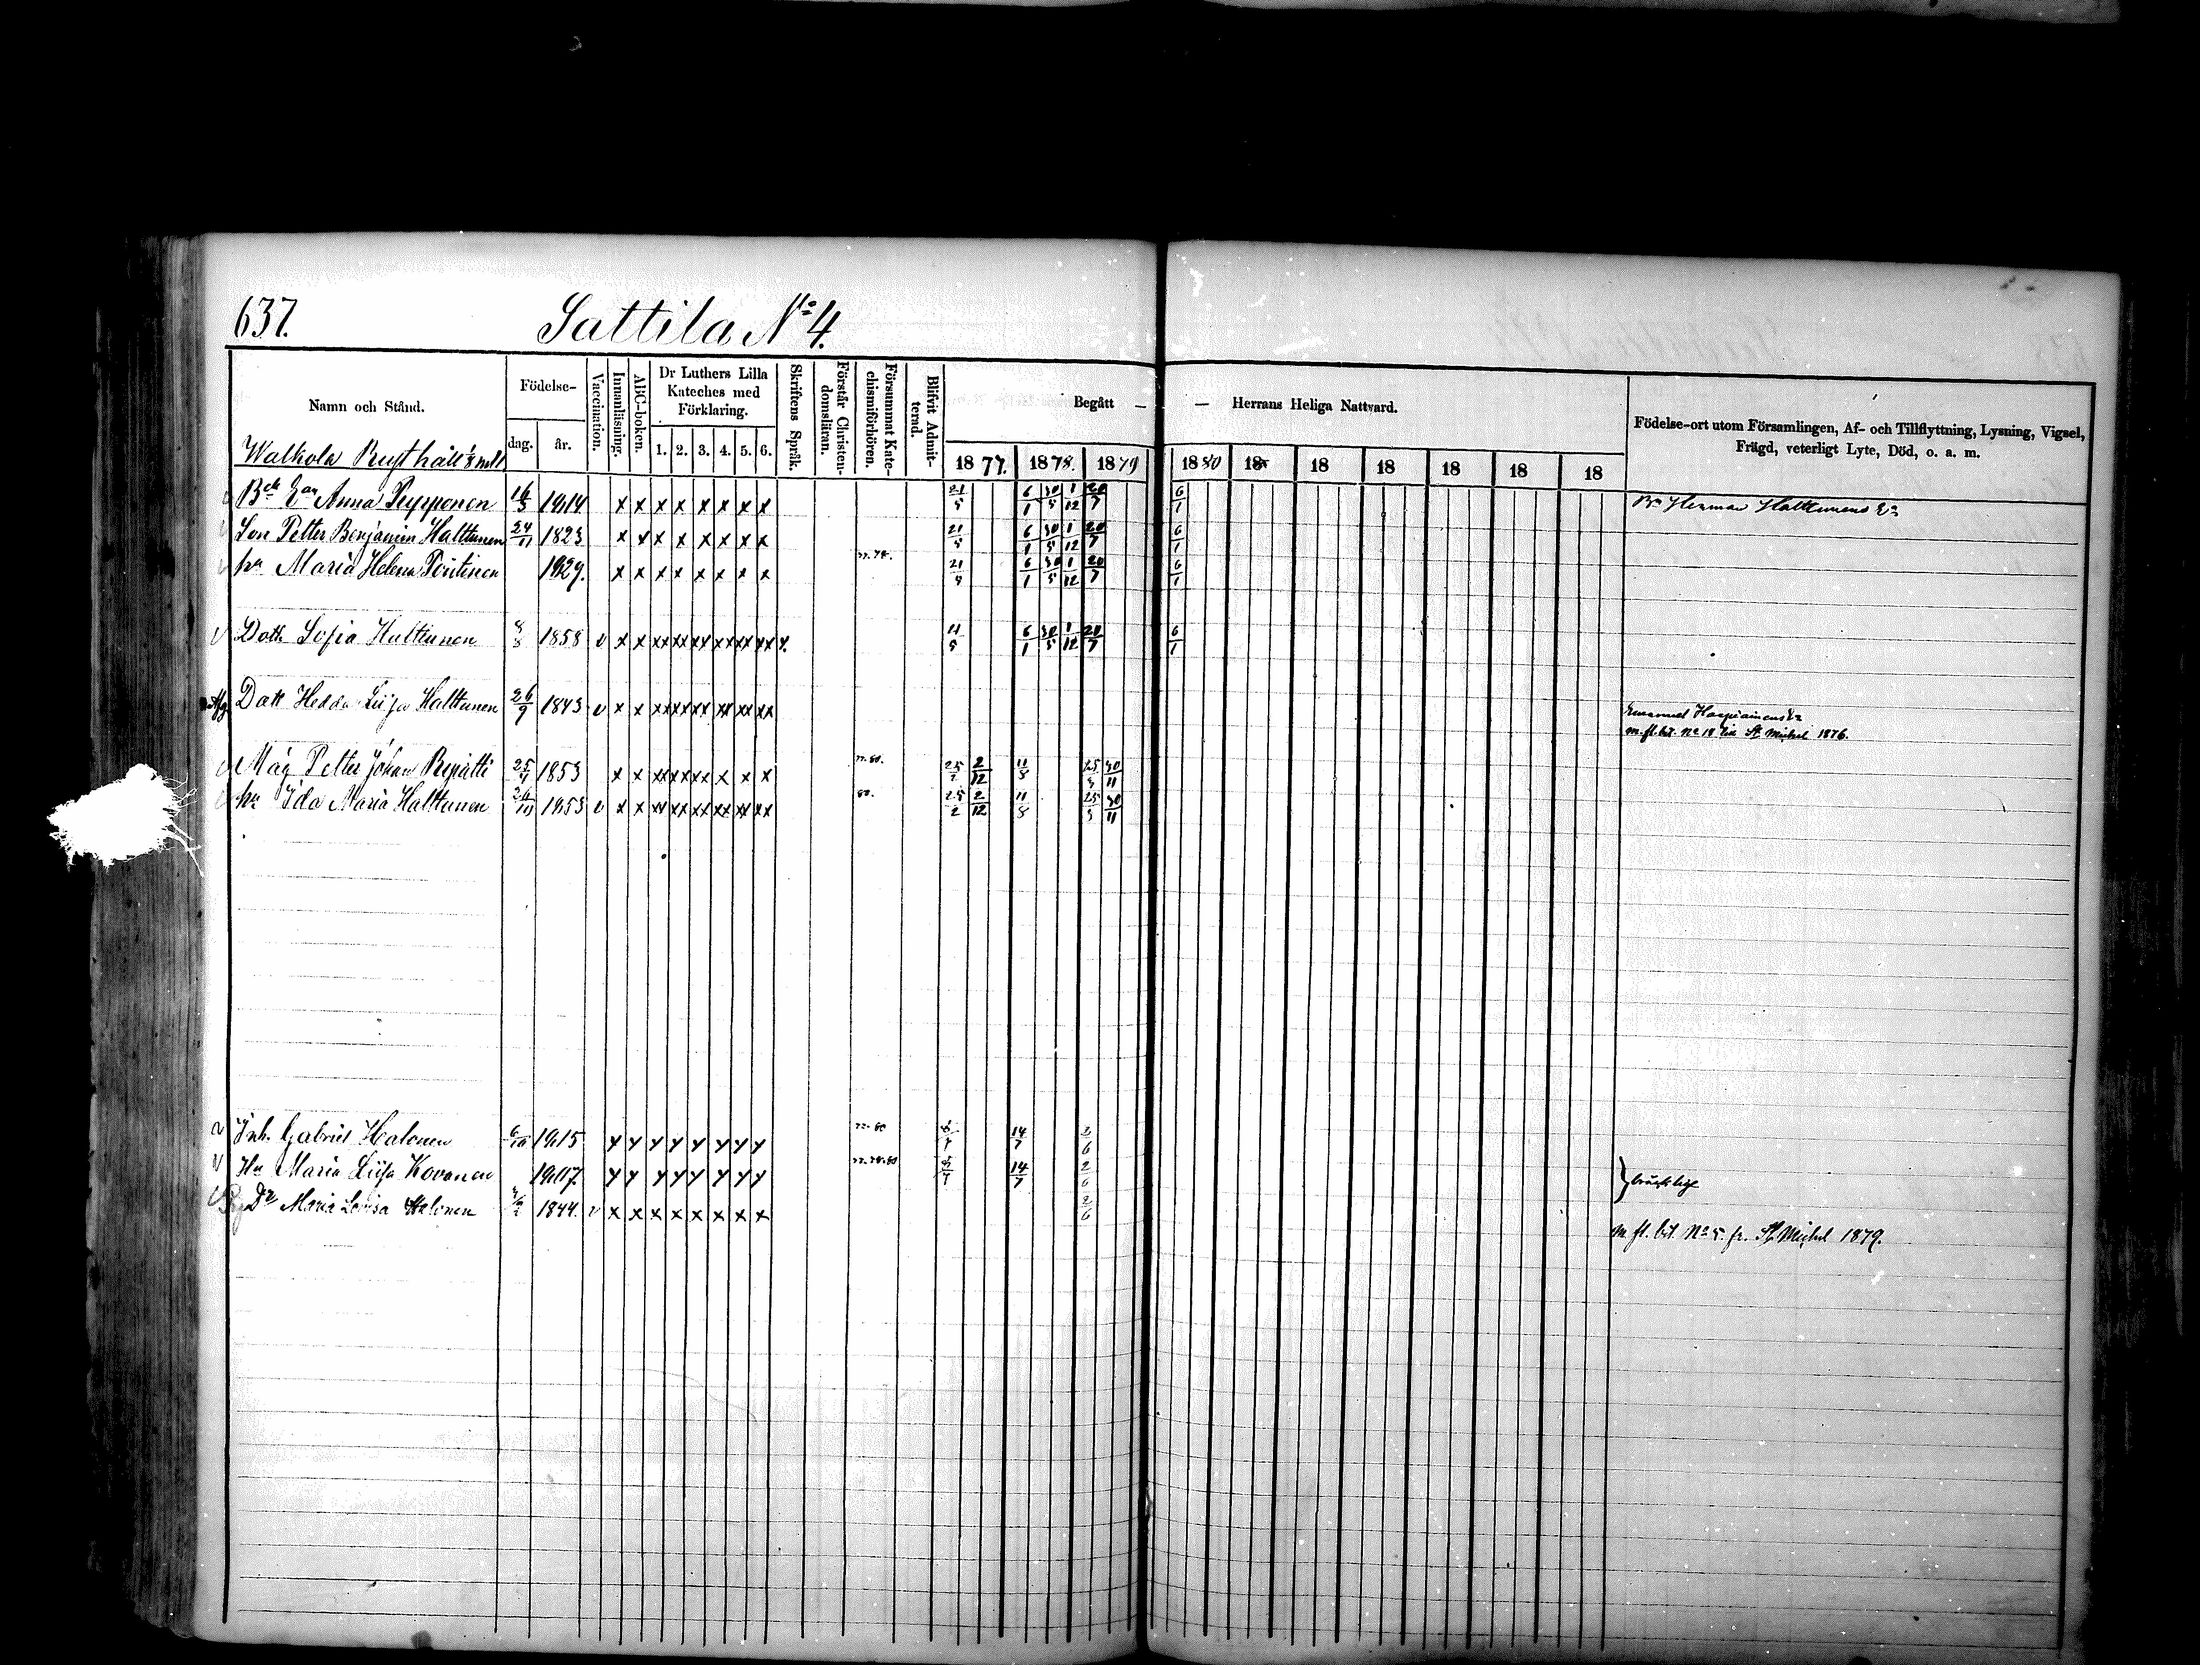 637.
Sattila No 4.
Namn och Stånd.
Födelse-
dag.
år.
Vaccination.
Innanläsning.
ABC-boken.
Dr Luthers Lilla Kateches med Förklaring.
1. 2. 3. 4. 5. 6.
Skriftens Språk.
Förstår Christendomsläran.
Försummat Katechismiförhören.
Blifvit Admitterad.
Begått — — Herrans Heliga Nattvard.
1877. 1878. 1879 1880 18 18 18 18 18 18
Födelse-ort utom Församlingen, Af- och Tillflyttning, Lysning, Vigsel,
Frägd, veterligt Lyte, Död, o. a. m.
Walkola Rusthåll
Anna Pypponen 1814 x x x x x x x x 21/5 6/1 30/5 1/12 20/7 6/1 Herman Halttunens
Son Petter Benjamin Halttunen 24/11 1823 x x x x x x x x 21/5 6/1 30/5 1/12 20/7 6/1
hu Maria Helena Pöntinen 1829. x x x x x x x x 77.78. 21/5 6/1 30/5 1/12 20/7 6/1
Dott. Sofia Halttunen 1858 v x x xx xx xx xx xx xx 6/1 30/5 1/12 20/7 6/1
Dott Hedda Liisa Halttunen 26/9 1843 v x x xx xx xx xx xx xx Emanuel
m. fl. bet. No 18 till St Michel 1876.
Måg Petter Johan Repatti 1853 x x xx xx xx x x x 77.80. 25/2 2/12 11/8 25/5 30/11
hu Ida Maria Halttunen 1853 v x x xx xx xx xx xx xx 80. 25/2 2/12 11/8 25/5 30/11
Inh. Gabriel Halonen 6/10 1815 14/7 2/6
Hu Maria Liisa Kovonen 1807. 77.78.80 14/7 2/6 bräcklige
Dr Maria Lovisa Halonen 1844. v x x x x x x x x 2/6
m. fl. bet. No 5. fr. St Michel 1879.